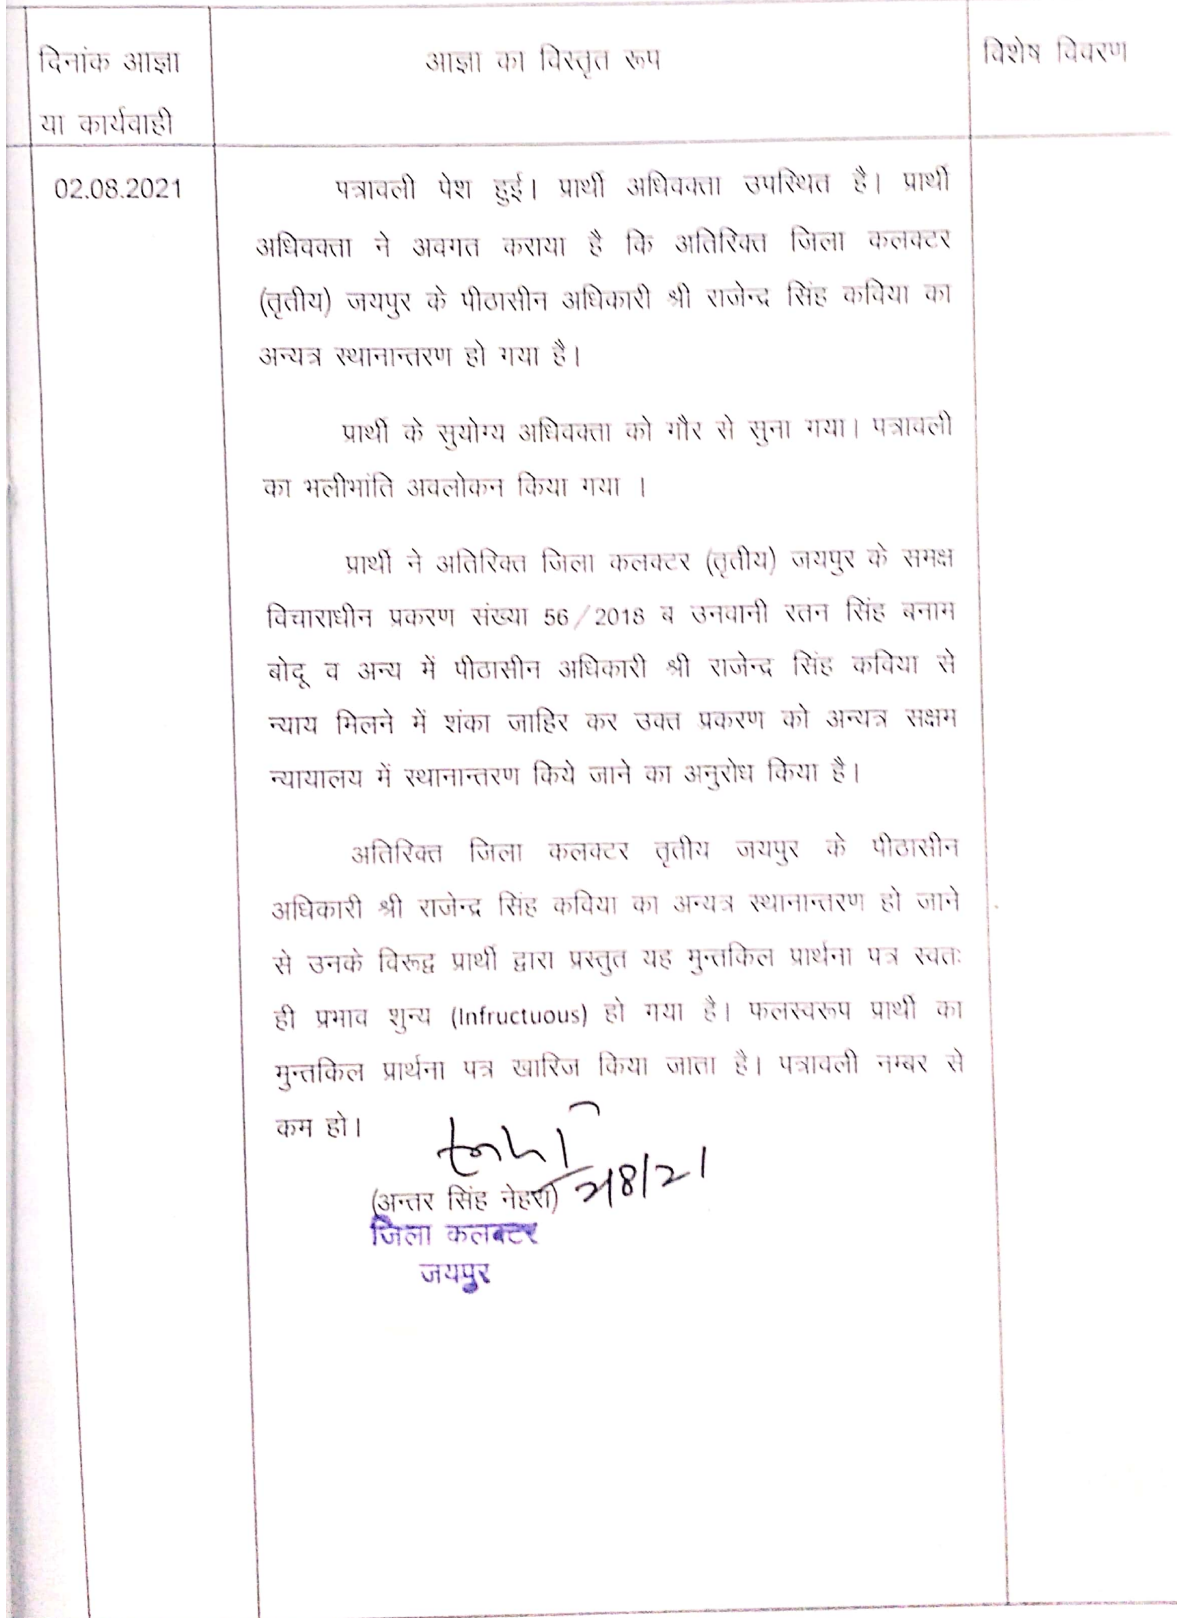 दिनांक आज्ञा
या कार्यवाही
आज्ञा का विस्तृत रूप
विशेष विवरण
02.08.2021
पत्रावली पेश हुई। प्रार्थी अधिवक्ता उपस्थित है। प्रार्थी
अधिवक्ता ने अवगत कराया है कि अतिरिक्त जिला कलक्टर
(तृतीय) जयपुर के पीठासीन अधिकारी श्री राजेन्द्र सिंह कविया का
अन्यत्र स्थानान्तरण हो गया है।
प्रार्थी के सुयोग्य अधिवक्ता को गौर से सुना गया। पत्रावली
का भलीभांति अवलोकन किया गया ।
प्रार्थी ने अतिरिक्त जिला कलक्टर (तृतीय) जयपुर के समक्ष
विचाराधीन प्रकरण संख्या 56/2018 ब उनवानी रतन सिंह बनाम
बोदू व अन्य में पीठासीन अधिकारी श्री राजेन्द्र सिंह कविया से
न्याय मिलने में शंका जाहिर कर उक्त प्रकरण को अन्यत्र सक्षम
न्यायालय में स्थानान्तरण किये जाने का अनुरोध किया है।
अतिरिक्त जिला कलक्टर तृतीय जयपुर के पीठासीन
अधिकारी श्री राजेन्द्र सिंह कविया का अन्यत्र स्थानान्तरण हो जाने
से उनके विरूद्व प्रार्थी द्वारा प्रस्तुत यह मुन्तकिल प्रार्थना पत्र स्वतः
ही प्रभाव शुन्य (Infructuous) हो गया है। फलस्वरूप प्रार्थी का
मुन्तकिल प्रार्थना पत्र खारिज किया जाता है। पत्रावली नम्बर से
कम हो।
2/8/21
(अन्तर सिंह नेहरा)
जिला कलक्टर
जयपुर